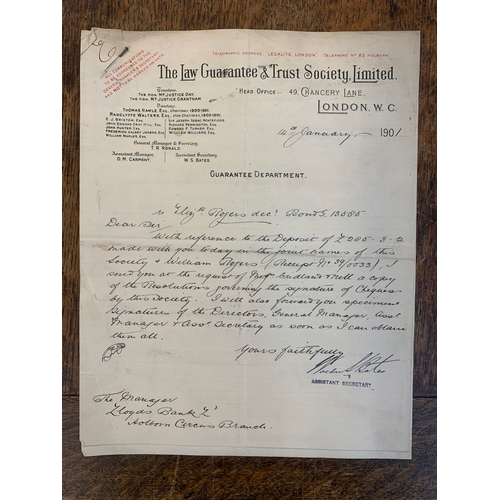 ALL COMMUNICATIONS
TO BE ADDRESSED TO THE
GENERAL MANAGER & SECRETARY
AND NOT TO AN INDIVIDUAL
TELEGRAPHIC ADDRESS, "LEGALITE, LONDON." TELEPHONE No 82 HOLBORN.
The Law Guarantee & Trust Society, Limited.
HEAD OFFICE: 49, CHANCERY LANE,
LONDON, W.C.
14th January 1901
Trustees.
THE HON. MR JUSTICE DAY.
THE HON. MR JUSTICE GRANTHAM.
Directors.
THOMAS RAWLE ESQ. CHAIRMAN 1900-1901.
RADCLYFFE WALTERS, ESQ. VICE CHAIRMAN 1900-1901.
E. J. BRISTOW, ESQ.
JOHN EDWARD GRAY HILL, ESQ.
JOHN HUNTER ESQ.
WILLIAM WILLIAMS, ESQ.
General Manager & Secretary
T. R. RONALD.
Assistant Manager
D. M. CARMENT.
Assistant Secretary
W. S. BATES.
GUARANTEE DEPARTMENT.
re Elizth Rogers decd Bond G. 13585
Dear Sir
With reference to the Deposit of £285-3-2
made with you today in the joint names of this
Society & William Rogers (Receipt No 39/0033), I
send you at the request of Messrs & Nell a copy
of the Resolutions governing the signature of Cheques
by this Society. I will also forward you specimen
signatures of the Directors, General Manager, Asst
Manager & Asst Secretary as soon as I can obtain
them all.
Yours faithfully
Walter S Bates
ASSISTANT SECRETARY.
The Manager
Lloyds Bank Ld
Holborn Circus Branch.